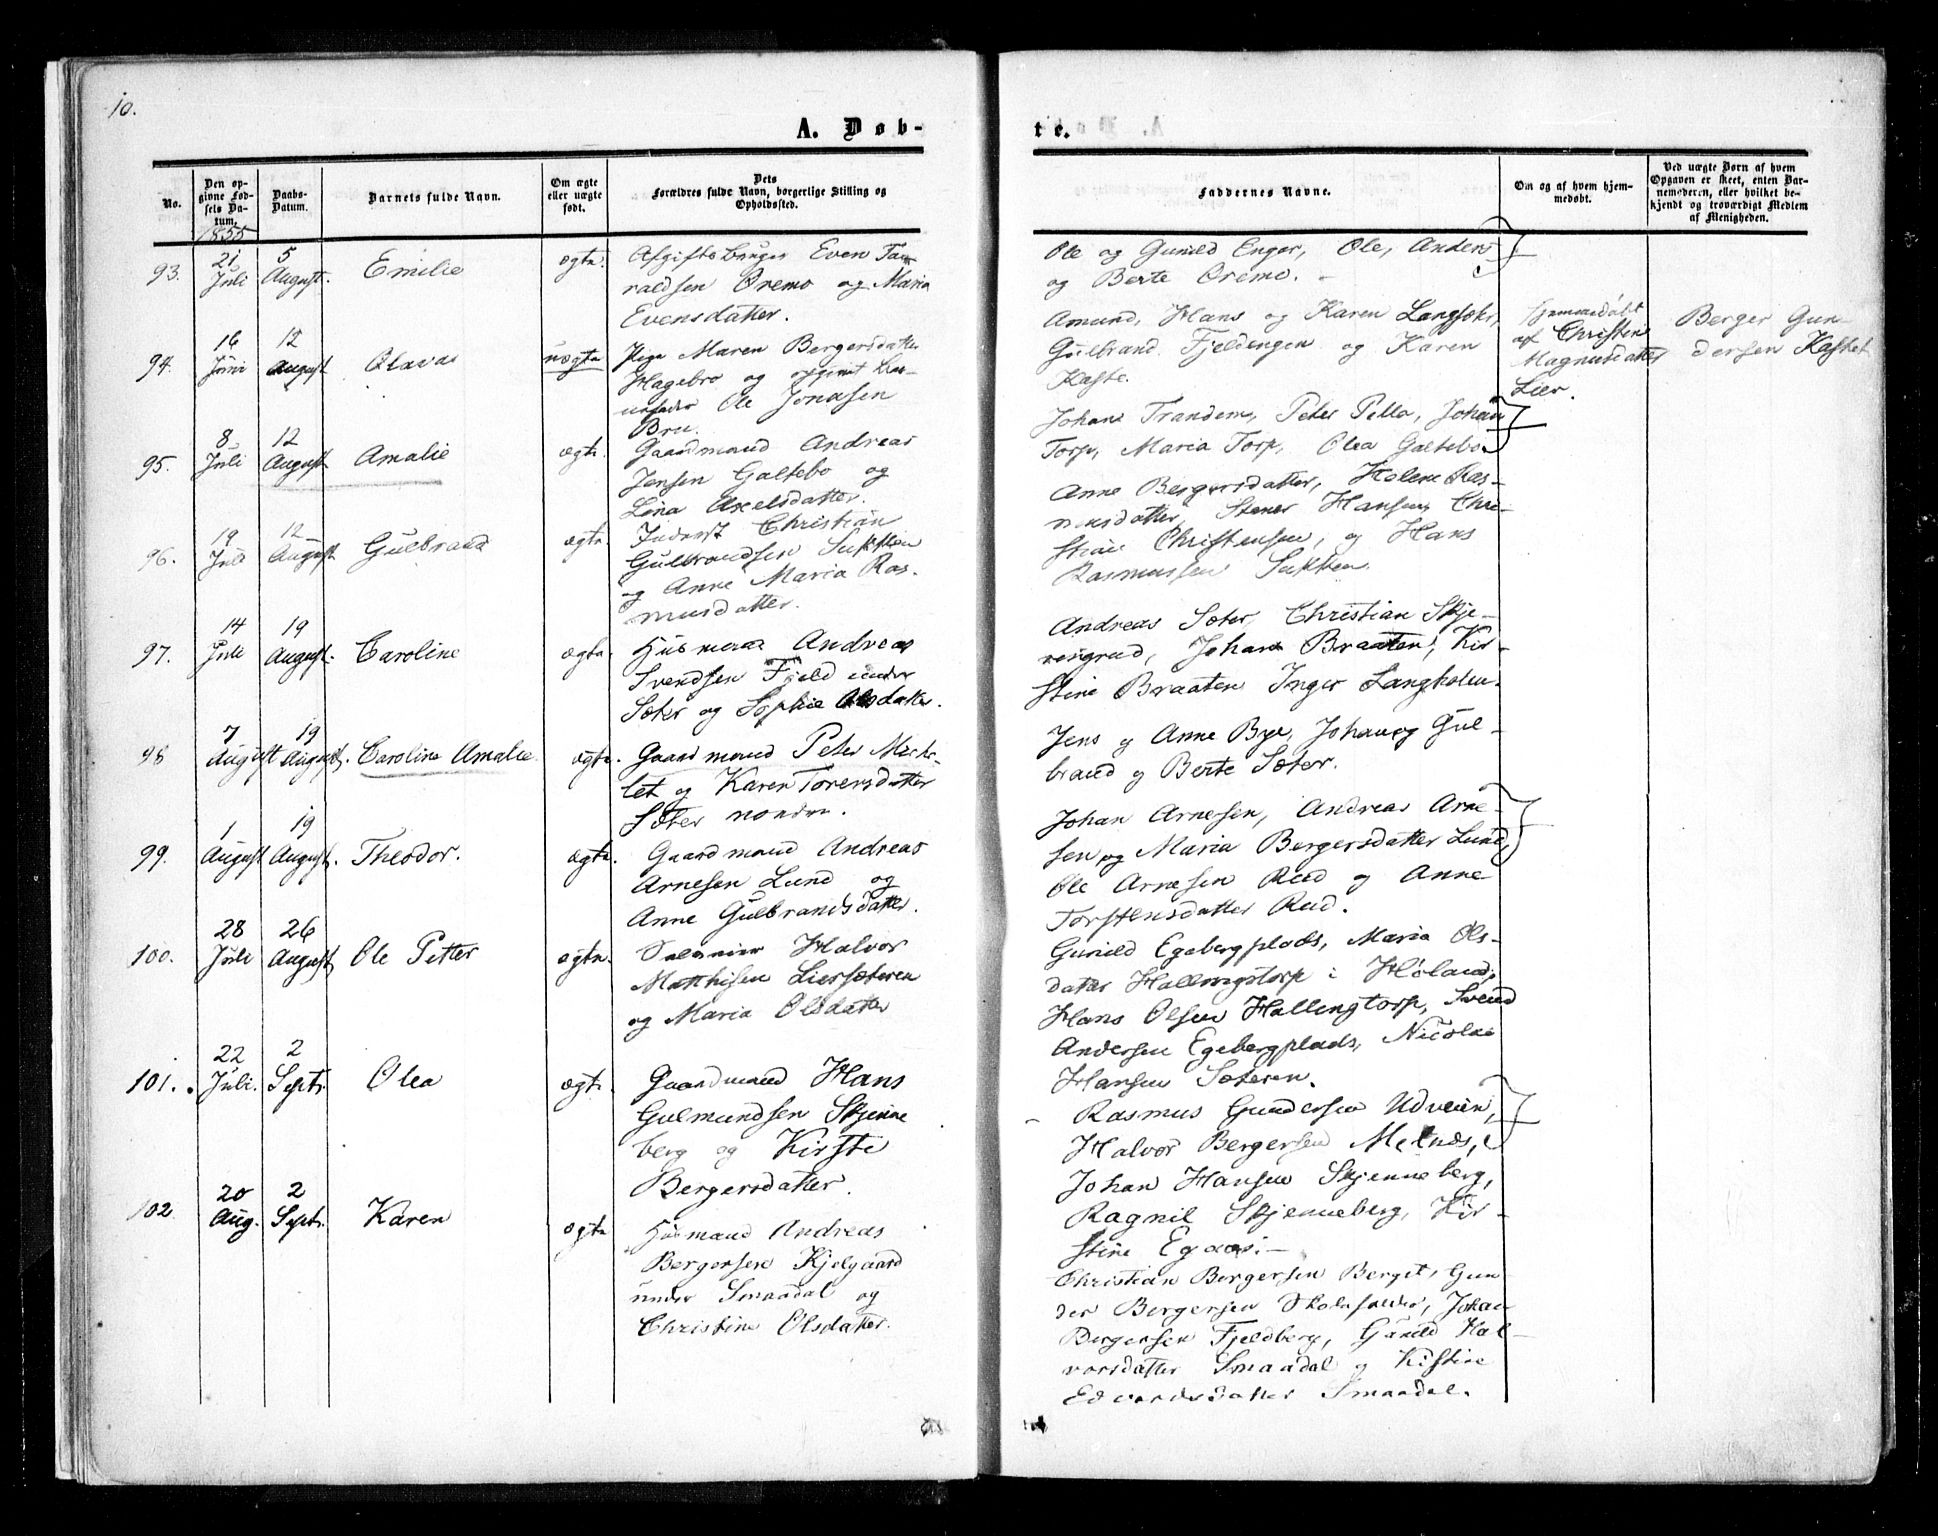 10.
A. Døb-
te.
No.
Den op-
givne Fød-
sels Da-
tum.
1855
Daabs-
Datum.
Barnets fulde Navn.
Om ægte
eller uægte
født.
Dets
Forældres fulde Navn, borgerlige Stilling og
Opholdssted.
Faddernes Navne.
Om og af hvem hjem-
medøbt.
Ved uægte Børn af hvem
Opgaven er skeet, enten Bar-
nemoderen, eller hvilket be-
kjendt og troværdigt Medlem
af Menigheden.
93.
21
Juli
5
August.
Emilie
ægte.
Even Ta-
raldsen Øremo og Maria
Evensdatter.
Ole og Gunild Enger, Ole, Anders
og Berte Øremo. -
94.
16
Juni
12
August
Olava
uægte
Pige Maren Bergersdatter
Hagebro og opgivet Bar-
nefader Ole Jonasen
Bru.
Amund, Hans og Karen Langsæter,
Gulbrand Fjeldengen og Karen
Kaste.
Hjemmedøbt
af Christen
Magnusdatter
Lier.
Berger Gun-
dersen Kastet
95.
8
Juli
12
August
Amalie
ægte.
Gaardmand Andreas
Jensen Galtebo og
Lina Axelsdatter.
Johan Trandem, Peter Pella, Johan
Torp, Maria Torp, Olea Galtebo
96.
19
Juli
12
August
Gulbrand
ægte.
Inderst Christian
Gulbrandsen Sukken
og Anne Maria Ras-
musdatter.
Anne Bergersdatter, Helene Ras-
musdatter, Stener Hansen, Chri-
stian Christensen, og Hans
Rasmussen Sukken.
97.
14
Juli
19
August.
Caroline
ægte.
Husmand Andreas
Svendsen Fjeld under
Sæter og Sophie Olsdatter.
Andreas Sæter, Christian Skje-
rengrud, Johan Braaten, Kir-
stine Braaten Inger Langholm.
98
7
August
19
August.
Caroline Amalie.
ægte.
Gaardmand Peter Miche-
let og Karen Torersdatter
Sæter nordre.
Jens og Anne Bye, Johan og Gul-
brand og Berte Sæter.
99.
1
August
19
August.
Theodor.
ægte.
Gaardmand Andreas
Arnesen Lund og
Anne Gulbrandsdatter.
Johan Arnesen, Andreas Arne-
sen og Maria Bergersdatter Lund,
Ole Arnesen Rud og Anne
Torstensdatter Rud.
100.
28
Juli
26
August
Ole Petter
ægte.
Halvor
Matthisen Liersæteren
og Maria Olsdatter
Gunild Egebergplads, Maria Ols-
datter Hallingtorp i Høland,
Hans Olsen Hallingtorp, Svend
Andersen Egebergplads, Nicolai
Hansen Sæteren.
101.
22
Juli.
2
Septr.
Olea
ægte.
Gaardmand Hans
Gulmundsen Skjenne
berg og Kirsti
Bergersdatter.
Rasmus Gundersen Udveien,
Halvor Bergersen Melnæs,
Johan Hansen Skjenneberg,
Ragnil Skjenneberg, Kir-
stine Egaas: -
102
20
Aug.
2
Septr.
Karen
ægte
Husmand Andreas
Bergersen Kjelgaard
under Smaadal og
Christine Olsdatter.
Christian Bergersen Berget, Gun-
der Bergersen, Johan
Bergersen Fjeldberg, Gunild Hal-
vorsdatter Smaadal og Kistine
Edvardsdatter Smaadal.